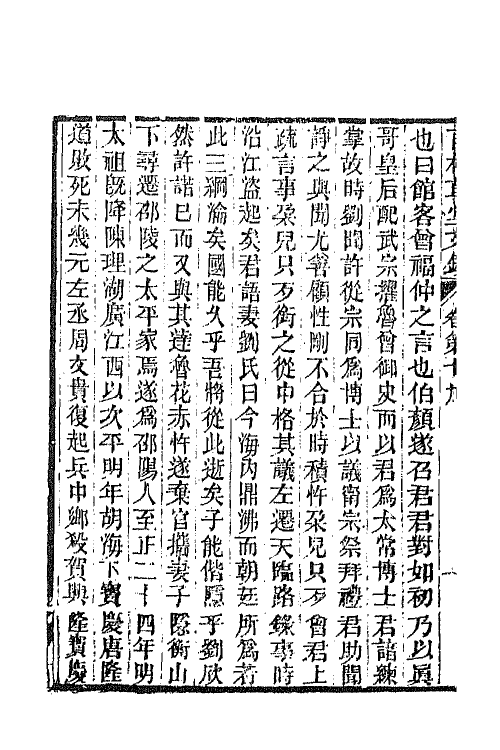 也曰館客曾福仲之言也伯顏遂召君君對如初乃以眞
哥皇后配武宗擢魯曾御史而以君爲太常博士君諳練
掌故時劉聞許從宗同爲博士以議甯宗祭拜禮君助聞
諍之與聞尤善顧性剛不合於時積忤朶兒只歹會君上
疏言事朶兒只歹銜之從中格其議左遷天臨路錄事時
沿江盜起矣君語妻劉氏曰今海內鼎沸而朝廷所爲若
此三綱淪矣國能久乎吾將從此逝矣子能偕隱乎劉欣
然許諾已而又與其達魯花赤忤遂棄官攜妻子隱衡山
下尋遷邵陵之太平家焉遂爲邵陽人至正二十四年明
太祖旣降陳理湖廣江西以次平明年胡海下寶慶唐隆
道敗死未幾元左丞周文貴復起兵中鄉殺賀興隆寶慶